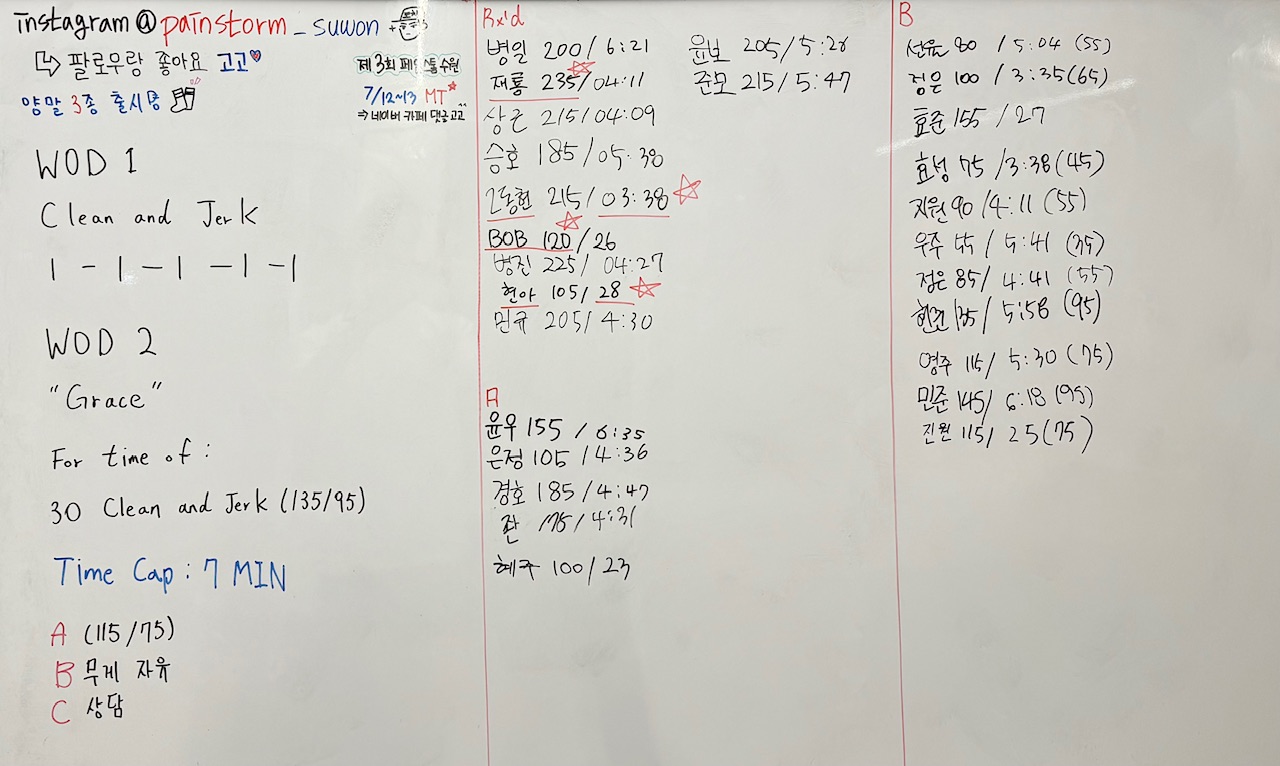 instagram@painstorm_suwon
↳ 팔로우랑 좋아요 고고♥
양말 3종 출시중
제3회 페인스톰수원
7/12~13 MT
⇒ 네이버 카페 댓글고고^^
WOD 1
Clean and Jerk
1 - 1 - 1 - 1 - 1
WOD 2
"Grace"
For time of :
30 Clean and Jerk (135/95)
Time Cap : 7 MIN
A (115/75)
B 무게 자유
C 상담
Rx'd
병일 200/6:21
재룡 235/04:11
상근 215/04:09
승호 185/05:38
2동현 215/03:38
BOB 120/26
병진 225/04:27
현아 105/28
민규 205/4:30
윤보 205/5:28
준모 215/5:47
A
윤우 155/6:35
은정 105/4:36
경호 185/4:47
175/4:31
혜주 100/23
B
선유 80/5:04 (55)
정은 100/3:35(65)
효준 155/27
효성 75/3:38(45)
지원 90/4:11 (55)
우주 55/5:41 (35)
정은 85/4:41 (55)
135/5:58 (95)
영주 115/5:30 (75)
민준 145/6:18 (95)
진원 115/25(75)